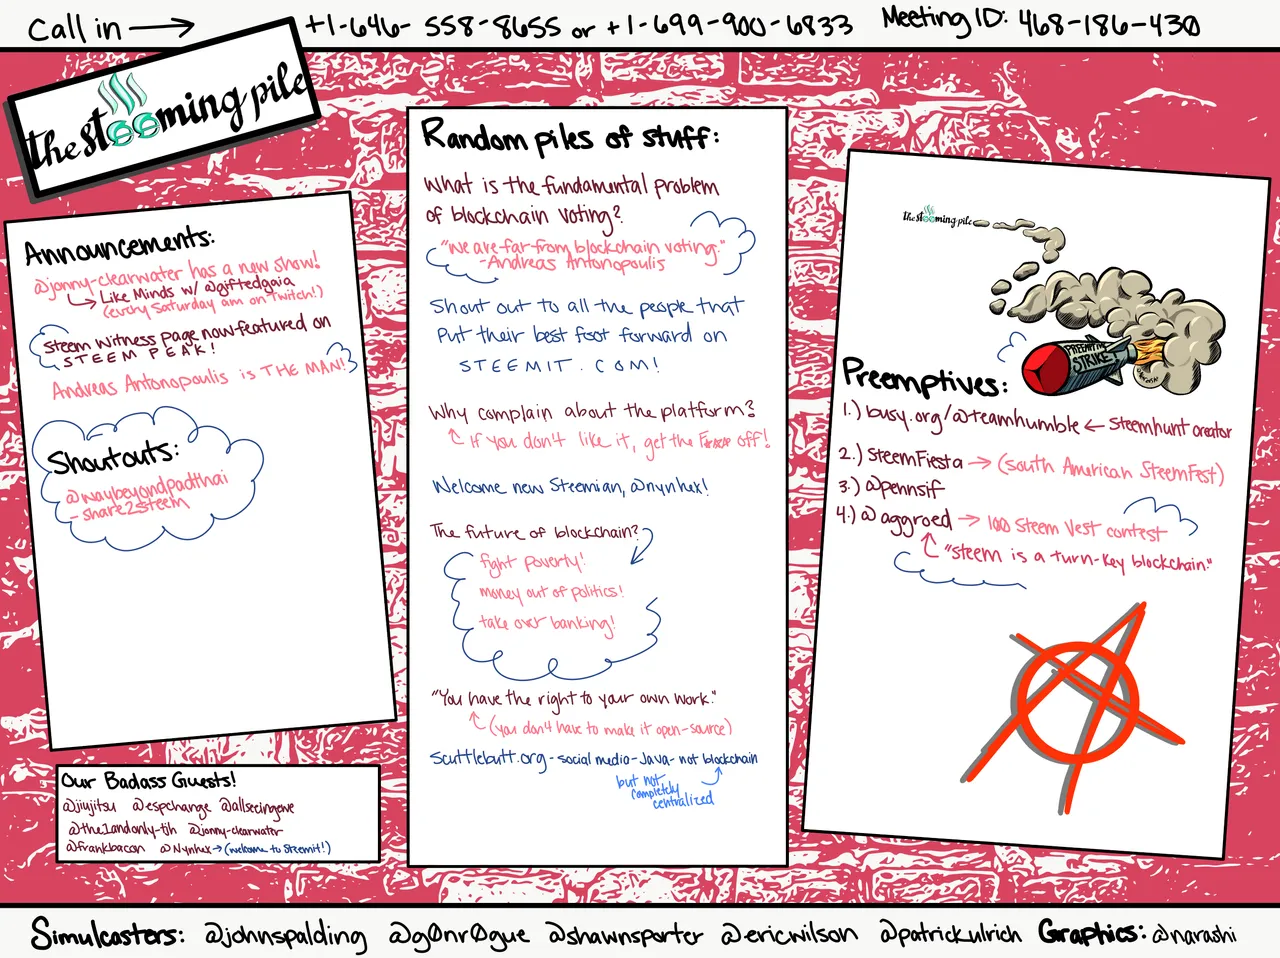 Call in → +1-646-558-8655 or +1-699-900-6833 Meeting ID: 468-186-430
the steeming pile
Announcements:
@jonny-clearwater has a new show!
Like Minds w/ @giftedgaia
(every Saturday am on Twitch!)
Steem Witness page now featured on
STEEM PEAK!
Andreas Antonopoulis is THE MAN!
Shoutouts:
@waybeyondpadthai
- share2steem
Our Badass Guests!
@jiujitsu @espchange @allseeingewe
@the1andonly-tjh @jonny-clearwater
@frankbacon @Nynhex → (welcome to Steemit!)
Random piles of stuff:
What is the fundamental problem
of blockchain voting?
"We are far from blockchain voting."
-Andreas Antonopoulis
Shout out to all the people that
Put their best foot forward on
STEEMIT.COM!
Why complain about the platform?
If you don't like it, get the off!
Welcome new Steemian, @nynhex!
The future of blockchain?
fight poverty!
money out of politics!
take over banking!
"You have the right to your own work."
(you don't have to make it open-source)
scuttlebutt.org - social media - Java - not blockchain
but not
completely
centralized
the steeming pile
PREEMPTIVE
STRIKE
Preemptives:
1.) busy.org/@teamhumble ← Steemhunt creator
2.) SteemFiesta → (South American SteemFest)
3.) @pennsif
4.) @aggroed → 100 Steem Vest contest
"Steem is a turn-key blockchain."
Simulcasters: @johnspalding @g0nr0gue @shawnsporter @ericwilson @patrickulrich Graphics: @narashi